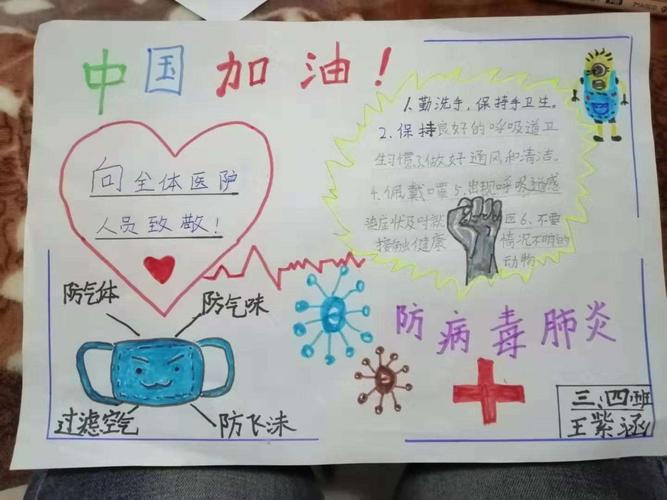 中国加油！
向全体医护
人员致敬！
1.勤洗手，保持手卫生。
2.保持良好的呼吸道卫
生习惯3.做好通风和清洁。
4.佩戴口罩5.出现呼吸道感
染症状及时就医6.不要
接触健康情况不明的
动物
防气体
防气味
过滤空气
防飞沫
防病毒肺炎
三、四班
王紫涵